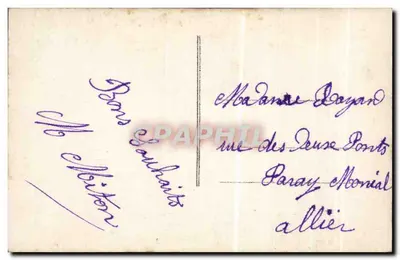 Bons Souhaits
M Miton
Madame Doyan
rue des Deux Ponts
Paray Monial
allier
CPAPHIL